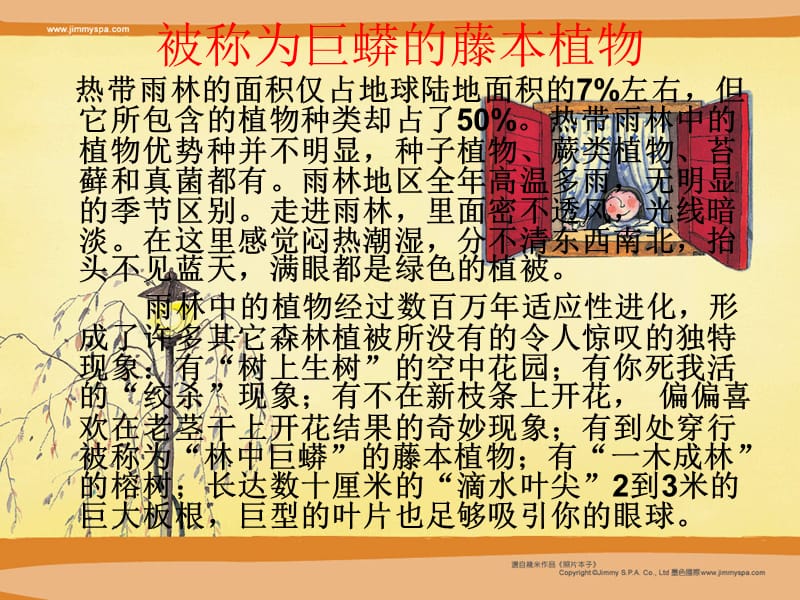 www.jimmyspa.com
被称为巨蟒的藤本植物
热带雨林的面积仅占地球陆地面积的7%左右，但
它所包含的植物种类却占了50%。热带雨林中的
植物优势种并不明显，种子植物、蕨类植物、苔
藓和真菌都有。雨林地区全年高温多雨，无明显
的季节区别。走进雨林，里面密不透风，光线暗
淡。在这里感觉闷热潮湿，分不清东西南北，抬
头不见蓝天，满眼都是绿色的植被。
雨林中的植物经过数百万年适应性进化，形
成了许多其它森林植被所没有的令人惊叹的独特
现象：有“树上生树”的空中花园；有你死我活
的“绞杀”现象；有不在新枝条上开花， 偏偏喜
欢在老茎干上开花结果的奇妙现象；有到处穿行
被称为“林中巨蟒”的藤本植物；有“一木成林”
的榕树；长达数十厘米的“滴水叶尖”2到3米的
巨大板根，巨型的叶片也足够吸引你的眼球。
選自幾米作品《照片本子》
Copyright ©Jimmy S.P.A. Co., Ltd 墨色國際www.jimmyspa.com